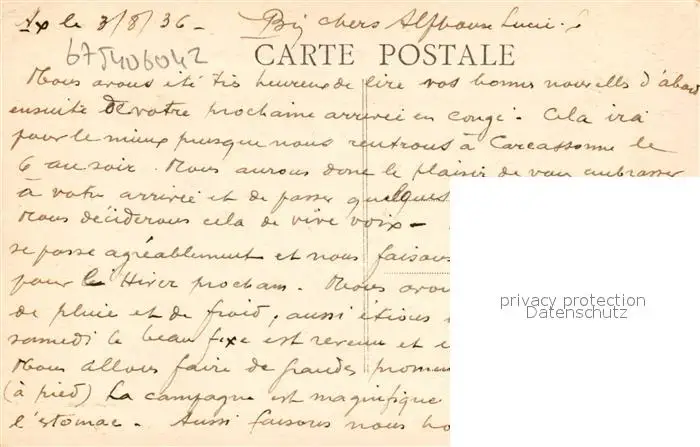 Ax le 3/8/36 - Bien chers Alphonse Lucie.
675406042
CARTE POSTALE
Nous avons été très heureux de lire vos bonnes nouvelles d'abord
ensuite de votre prochaine arrivée en congé. Cela ira
pour le mieux puisque nous rentrons à Carcassonne le
6 au soir. Nous aurons donc le plaisir de vous embrasser
à votre arrivée et de passer quelques
Nous déciderons cela de vive voix -
se passe agréablement et nous faisons
pour l'Hiver prochain. Nous avons
de pluie et de froid, aussi étions
samedi le beau fixe est revenu et
Nous allons faire de grandes promen
(à pied) La campagne est magnifique
l'estomac. Aussi faisons nous ho
privacy protection
Datenschutz